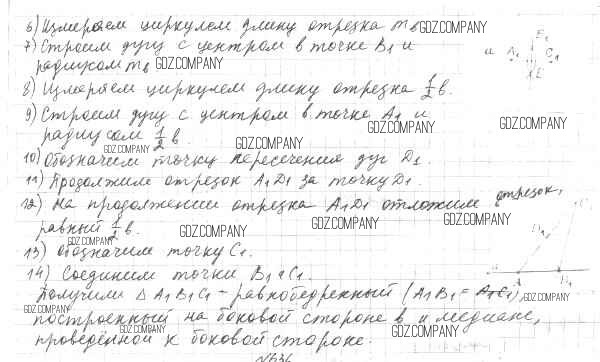 6) Измеряем циркулем длину отрезка mв GDZ.COMPANY
7) Строим дугу с центром в точке B₁ и
радиусом mв GDZ.COMPANY
8) Измеряем циркулем длину отрезка ½ в.
9) Строим дугу с центром в точке A₁ и
радиусом ½ в. GDZ.COMPANY GDZ.COMPANY
GDZ.COMPANY GDZ.COMPANY
10) Обозначим точку пересечения дуг D₁.
11) Продолжим отрезок A₁D₁ за точку D₁.
12) На продолжении отрезка A₁D₁ отложим отрезок,
равный ½ в. GDZ.COMPANY GDZ.COMPANY GDZ.COMPANY
GDZ.COMPANY
13) Обозначим точку C₁.
14) Соединим точки B₁ и C₁.
Получим Δ A₁B₁C₁ - равнобедренный (A₁B₁ = A₁C₁), GDZ.COMPANY
GDZ.COMPANY
построенный на боковой стороне в и медиане,
GDZ.COMPANY GDZ.COMPANY
проведённой к боковой стороне.